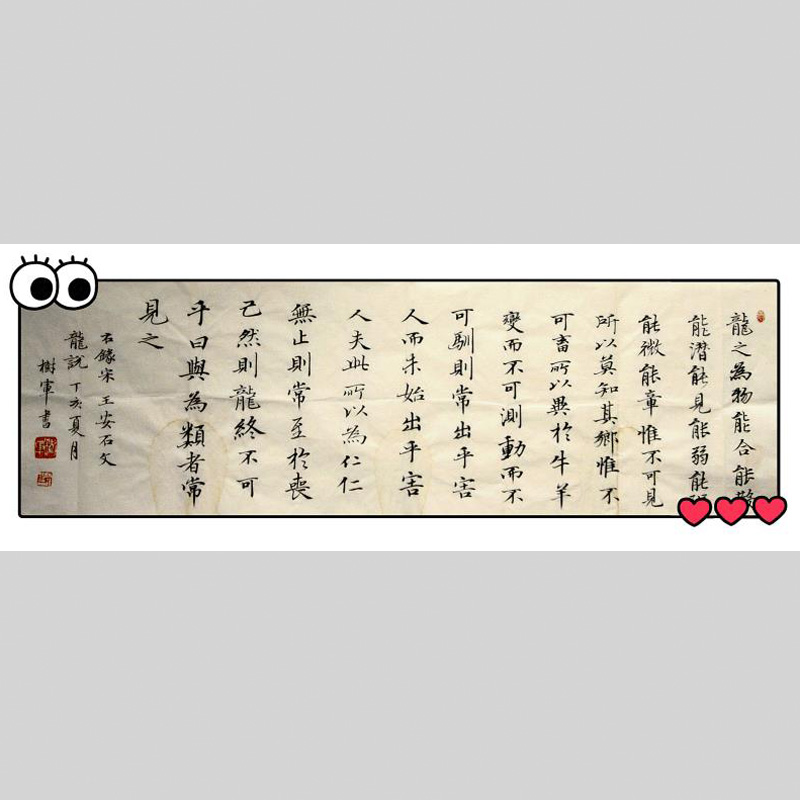 龍之為物能合能散
能潛能見能弱能
能微能章惟不可見
所以莫知其鄉惟不
可畜所以異於牛羊
變而不可測動而不
可馴則常出乎害
人而未始出乎害
人夫此所以為仁仁
無止則常至於喪
己然則龍終不可
乎曰與為類者常
見之
右錄宋王安石文
龍說丁亥夏月
樹軍書